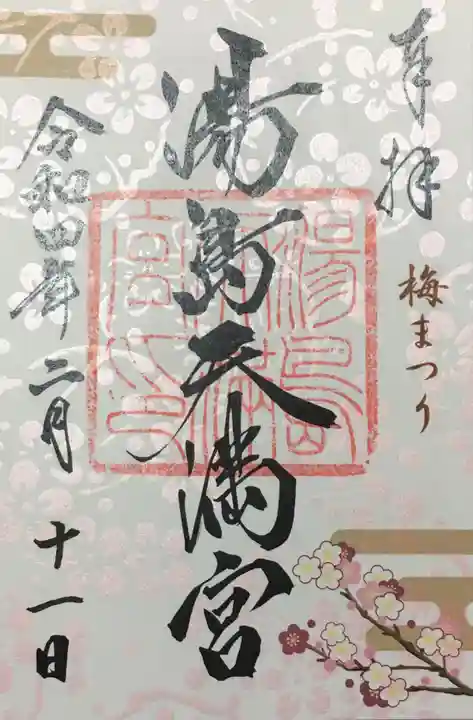 奉拝
梅まつり
湯島天満宮
湯島天満宮之印
令和四年二月十一日